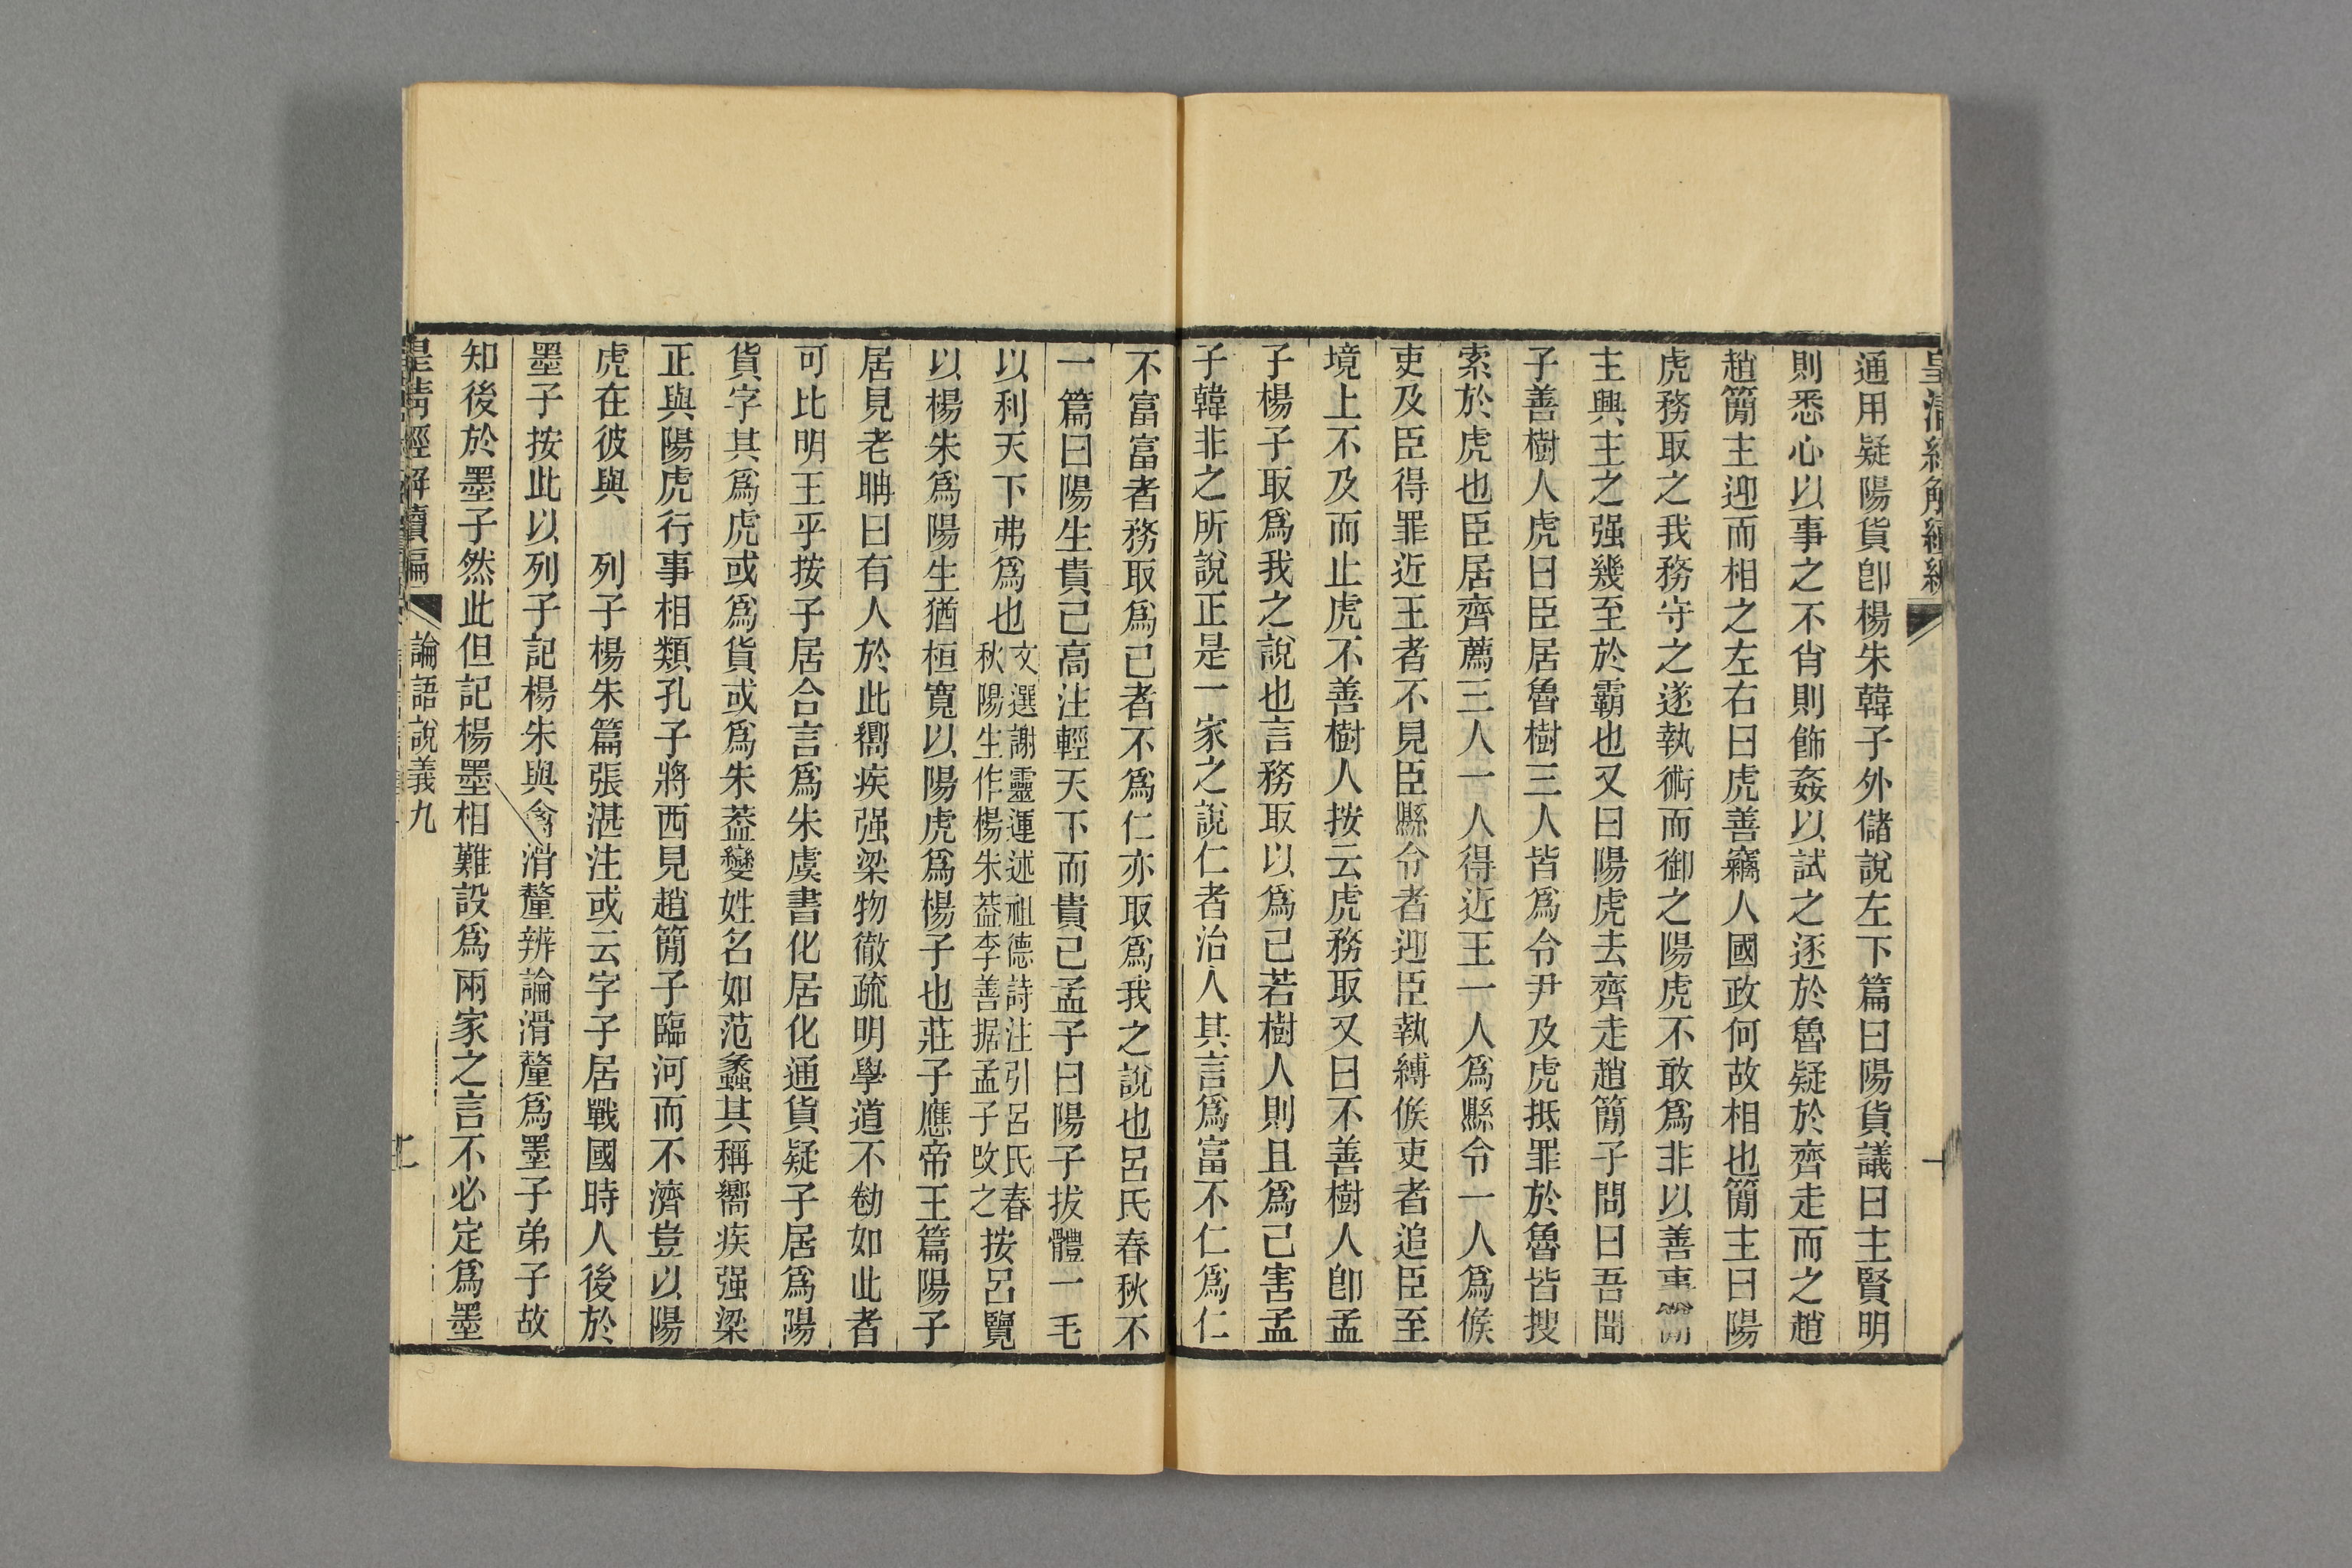 皇清經解續編
通用疑陽貨卽楊朱韓子外儲說左下篇曰陽貨議曰主賢明
則悉心以事之不肖則飾姦以試之逐於魯疑於齊走而之趙
趙簡主迎而相之左右曰虎善竊人國政何故相也簡主曰陽
虎務取之我務守之遂執術而御之陽虎不敢爲非以善事簡
主興主之强幾至於霸也又曰陽虎去齊走趙簡子問曰吾聞
子善樹人虎曰臣居魯樹三人皆爲令尹及虎抵罪於魯皆搜
索於虎也臣居齊薦三人一人得近王一人爲縣令一人爲候
吏及臣得罪近王者不見臣縣令者迎臣執縛候吏者追臣至
境上不及而止虎不善樹人按云虎務取又曰不善樹人卽孟
子楊子取爲我之說也言務取以爲己若樹人則且爲己害孟
子韓非之所說正是一家之說仁者治人其言爲富不仁爲仁
不富富者務取爲己者不爲仁亦取爲我之說也呂氏春秋不
一篇曰陽生貴己高注輕天下而貴己孟子曰陽子拔體一毛
以利天下弗爲也文選謝靈運述祖德詩注引呂氏春秋陽生作楊朱葢李善据孟子改之按呂覽
以楊朱爲陽生猶桓寬以陽虎爲楊子也莊子應帝王篇陽子
居見老聃曰有人於此嚮疾强梁物徹疏明學道不勌如此者
可比明王乎按子居合言爲朱虞書化居化通貨疑子居爲陽
貨字其爲虎或爲貨或爲朱葢變姓名如范蠡其稱嚮疾强梁
正與陽虎行事相類孔子將西見趙簡子臨河而不濟豈以陽
虎在彼與　列子楊朱篇張湛注或云字子居戰國時人後於
墨子按此以列子記楊朱與禽滑釐辨論滑釐爲墨子弟子故
知後於墨子然此但記楊墨相難設爲兩家之言不必定爲墨
皇清經解續編　論語說義九